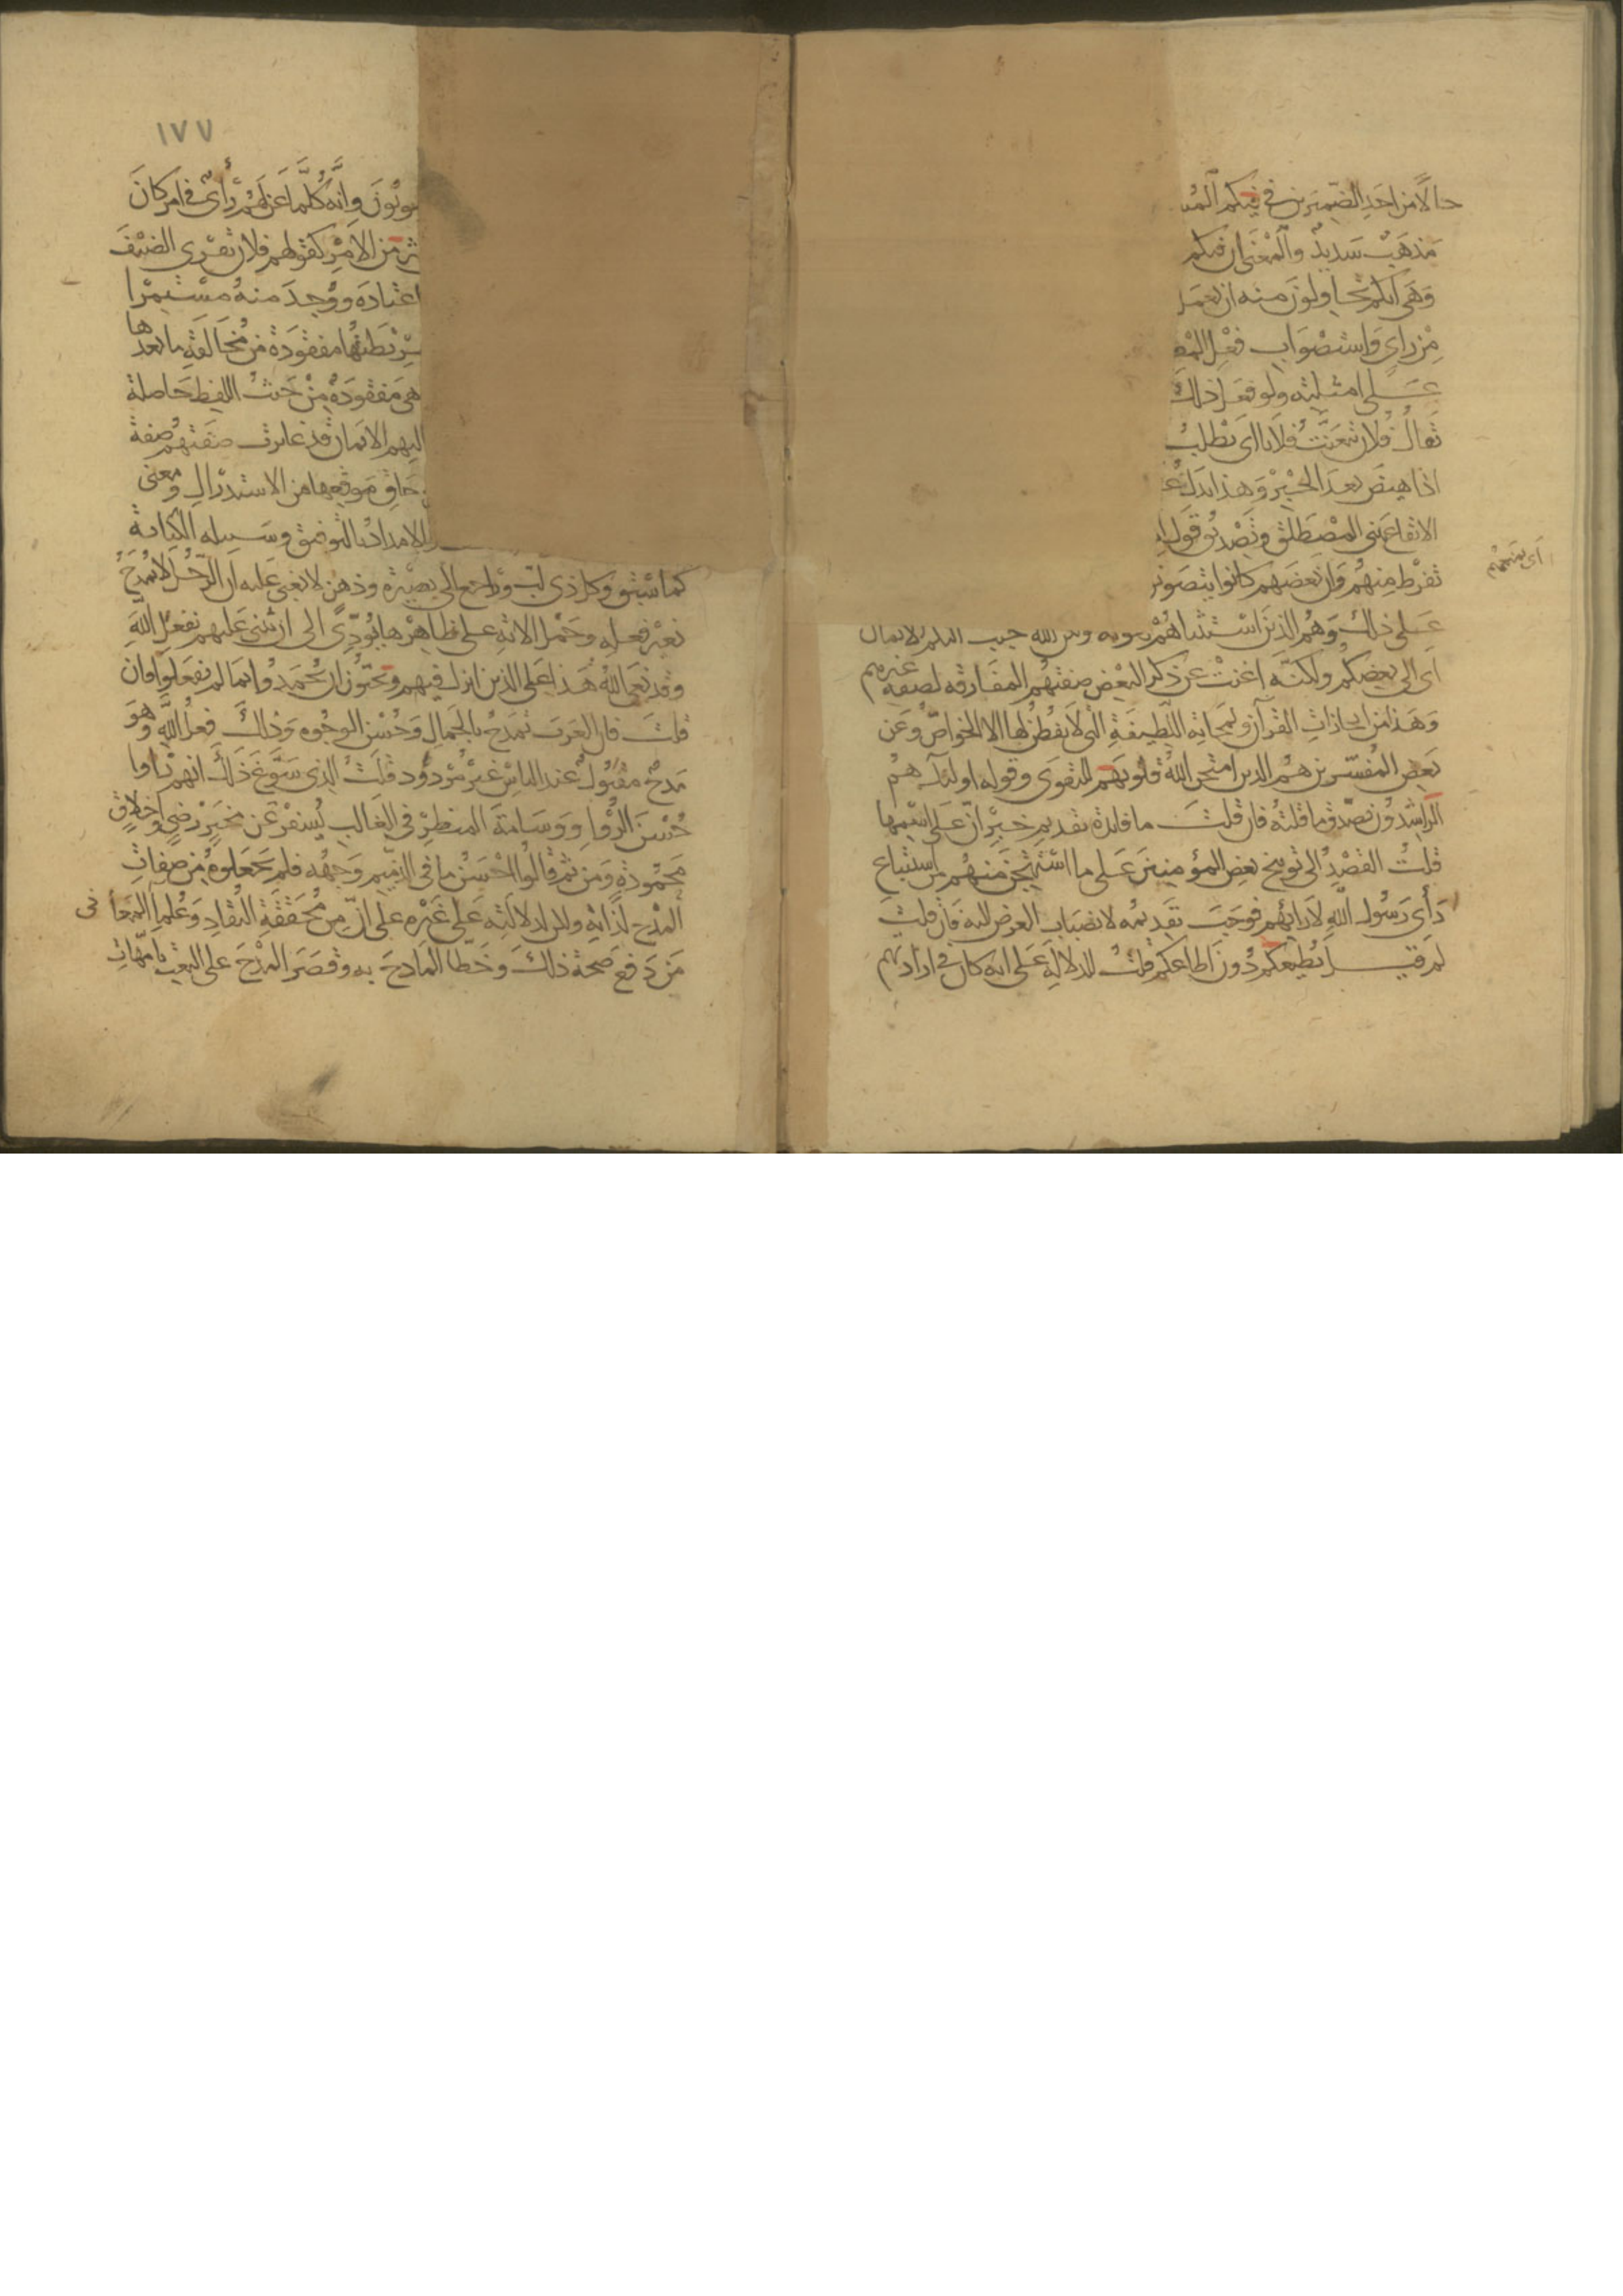 حالا من احد الضميرين في فيكم المس
مذهب سديد والمعنى ان فيكم
وهي انكم تحاولون منه ان يعمل
من راي واستصواب فعل المط
على امثلته ولو فعل ذلك
يقال فلان يتعنت فلانا اي يطلب
اذا هيض بعد الجبر وهذا يدل عـ
الايقاع ببني المصطلق وتصديق قول ا
تفرط منهم وان بعضهم كانوا يتصونو
اي يمنعهم
على ذلك وهم الذين استثناهم بقوله ولكن الله حبب اليكم الايمان
اي الى بعضكم ولكنه اغنت عن ذكر البعض صفتهم المفارقة لصفة غيرهم
وهذا من ايجازات القرآن ولمحاته اللطيفة التي لا يفطن لها الا الخواص وعن
بعض المفسرين هم الذين امتحن الله قلوبهم للتقوى وقوله اولئك هم
الراشدون يصدق ما قلته فان قلت ما فائدة تقديم خبر ان على اسمها
قلت القصد الى توبيخ بعض المؤمنين على ما استهجن منهم من استتباع
رأي رسول الله لارائهم فوجب تقديمه لانصباب الغرض اليه فان قلت
لم قيل يطيعكم دون اطاعكم قلت للدلالة على انه كان في ارادتهم
١٧٧
وبون وانه كلما عن لهم رأي في امر كان
ثير من الامر كقولهم فلان يقري الضيف
اعتاده ووجد منه مستمرا
شريطتها مفقودة من مخالفة ما بعدها
هي مفقودة من حيث اللفظ حاصلة
اليهم الايمان قد غايرت صفتهم صفة
حاق موقعها من الاستدراك ومعنى
والامداد بالتوفيق وسبيله الكناية
كما سبق وكل ذي لب وراجع الى بصيرة وذهن لا يغبى عليه ان الرجل لا يمدح
بغير فعله وحمل الاية على ظاهرها يؤدي الى ان يثنى عليهم بفعل الله
وقد نعى الله هذا على الذين انزل فيهم ويحبون ان يحمدوا بما لم يفعلوا فان
قلت فان العرب تمدح بالجمال وحسن الوجوه وذلك فعل الله وهو
مدح مقبول عند الناس غير مردود قلت الذي سوغ ذلك انهم راوا
حسن الرؤا ووسامة المنظر في الغالب يسفر عن مخبر رضي واخلاق
محمودة ومن ثم قالوا احسن ما في الدميم وجهه فلم يجعلوه من صفات
المدح لذاته ولكن لدلالته على غيره على ان من محققة النقاد وعلما المعاني
من دفع صحة ذلك وخطا المادح به وقصر المدح على النعت بامهات